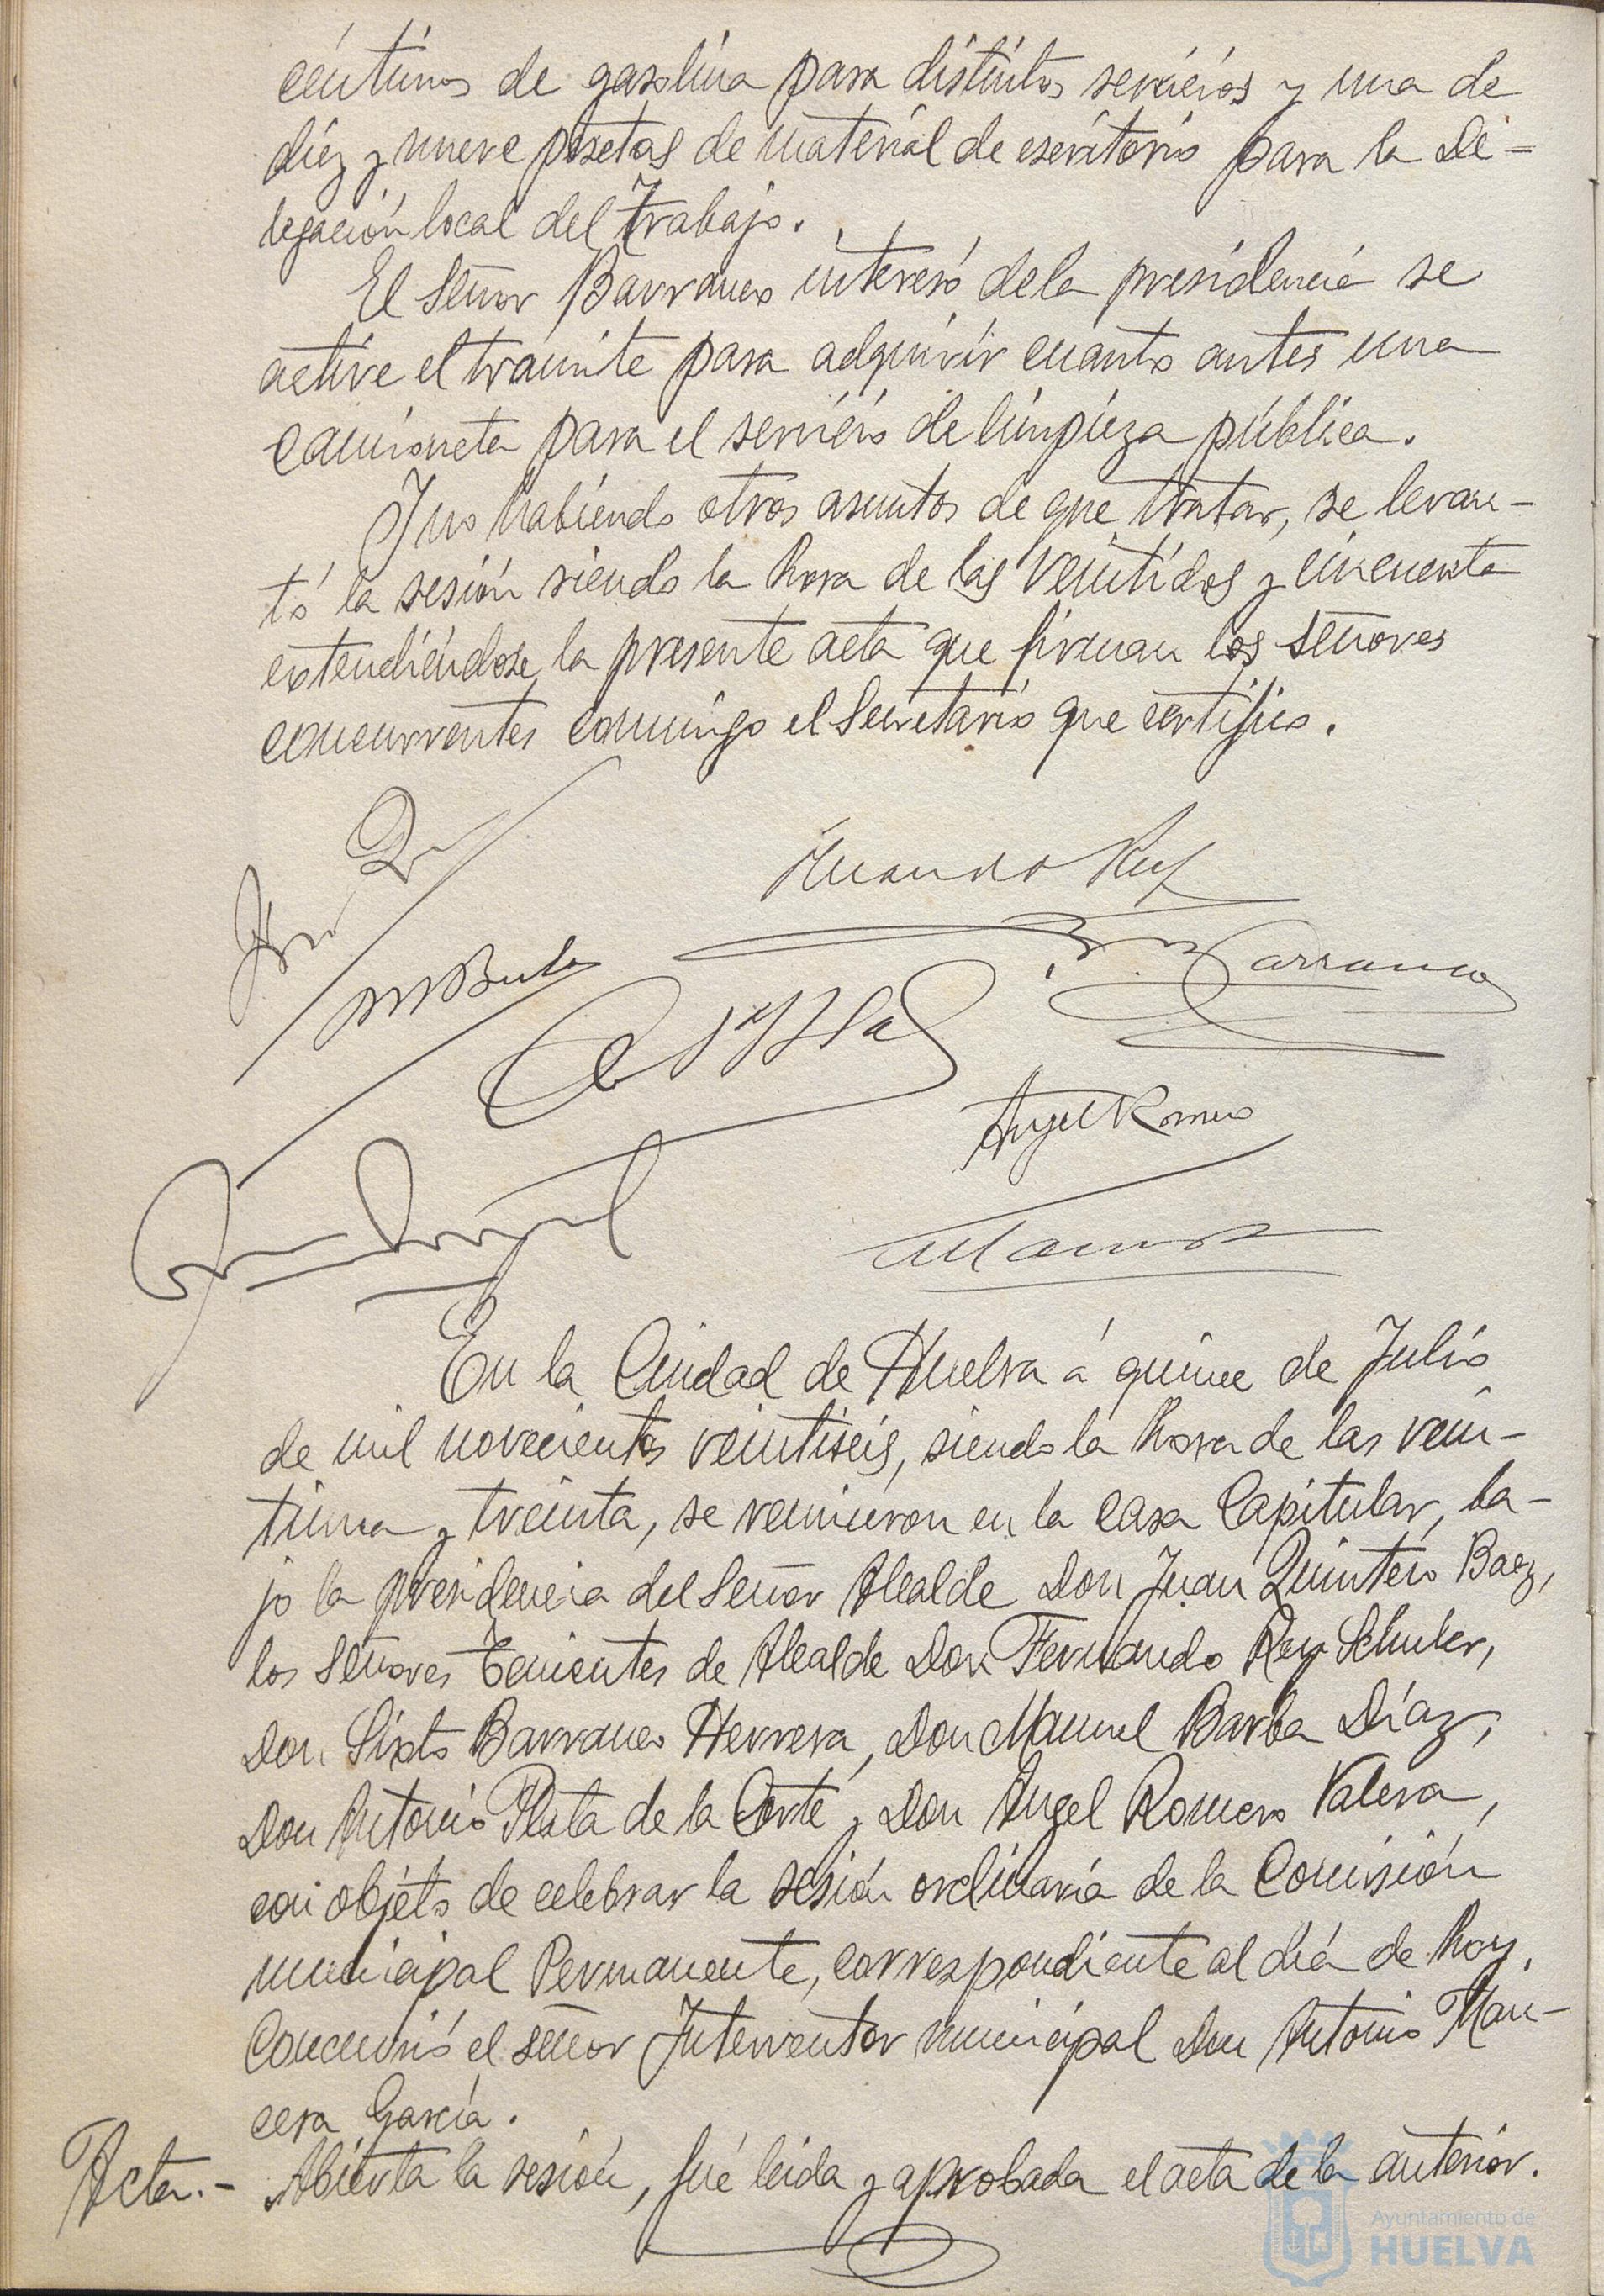 céntimos de gasolina para distintos servicios y una de
diez y nueve pesetas de material de escritorio para la De-
legación local del Trabajo.
El Señor Barranco interesó de la presidencia se
active el tramite para adquirir cuanto antes una
camioneta para el servicio de limpieza pública.
Y no habiendo otros asuntos de que tratar, se levan-
tó la sesión siendo la hora de las veintidos y cincuenta
extendiéndose la presente acta que firman los señores
concurrentes conmigo el Secretario que certifico.
Fernando Rey
M Barba
Barranco
A Plata
Angel Romero
En la Ciudad de Huelva á quince de Julio
de mil novecientos veintiseis, siendo la hora de las vein-
tiuna y treinta, se reunieron en la casa Capitular, ba-
jo la presidencia del Señor Alcalde Don Juan Quintero Baez,
los Señores Tenientes de Alcalde Don Fernando Rey Schuler,
Don Sixto Barranco Herrera, Don Manuel Barba Díaz,
Don Antonio Plata de la Corte y Don Angel Romero Valera,
con objeto de celebrar la sesión ordinaria de la Comisión
municipal Permanente, correspondiente al día de hoy.
Concurrió el señor Interventor municipal Don Antonio Man-
cera García.
Acta.- Abierta la sesión, fué leida y aprobada el acta de la anterior.
Ayuntamiento de
HUELVA